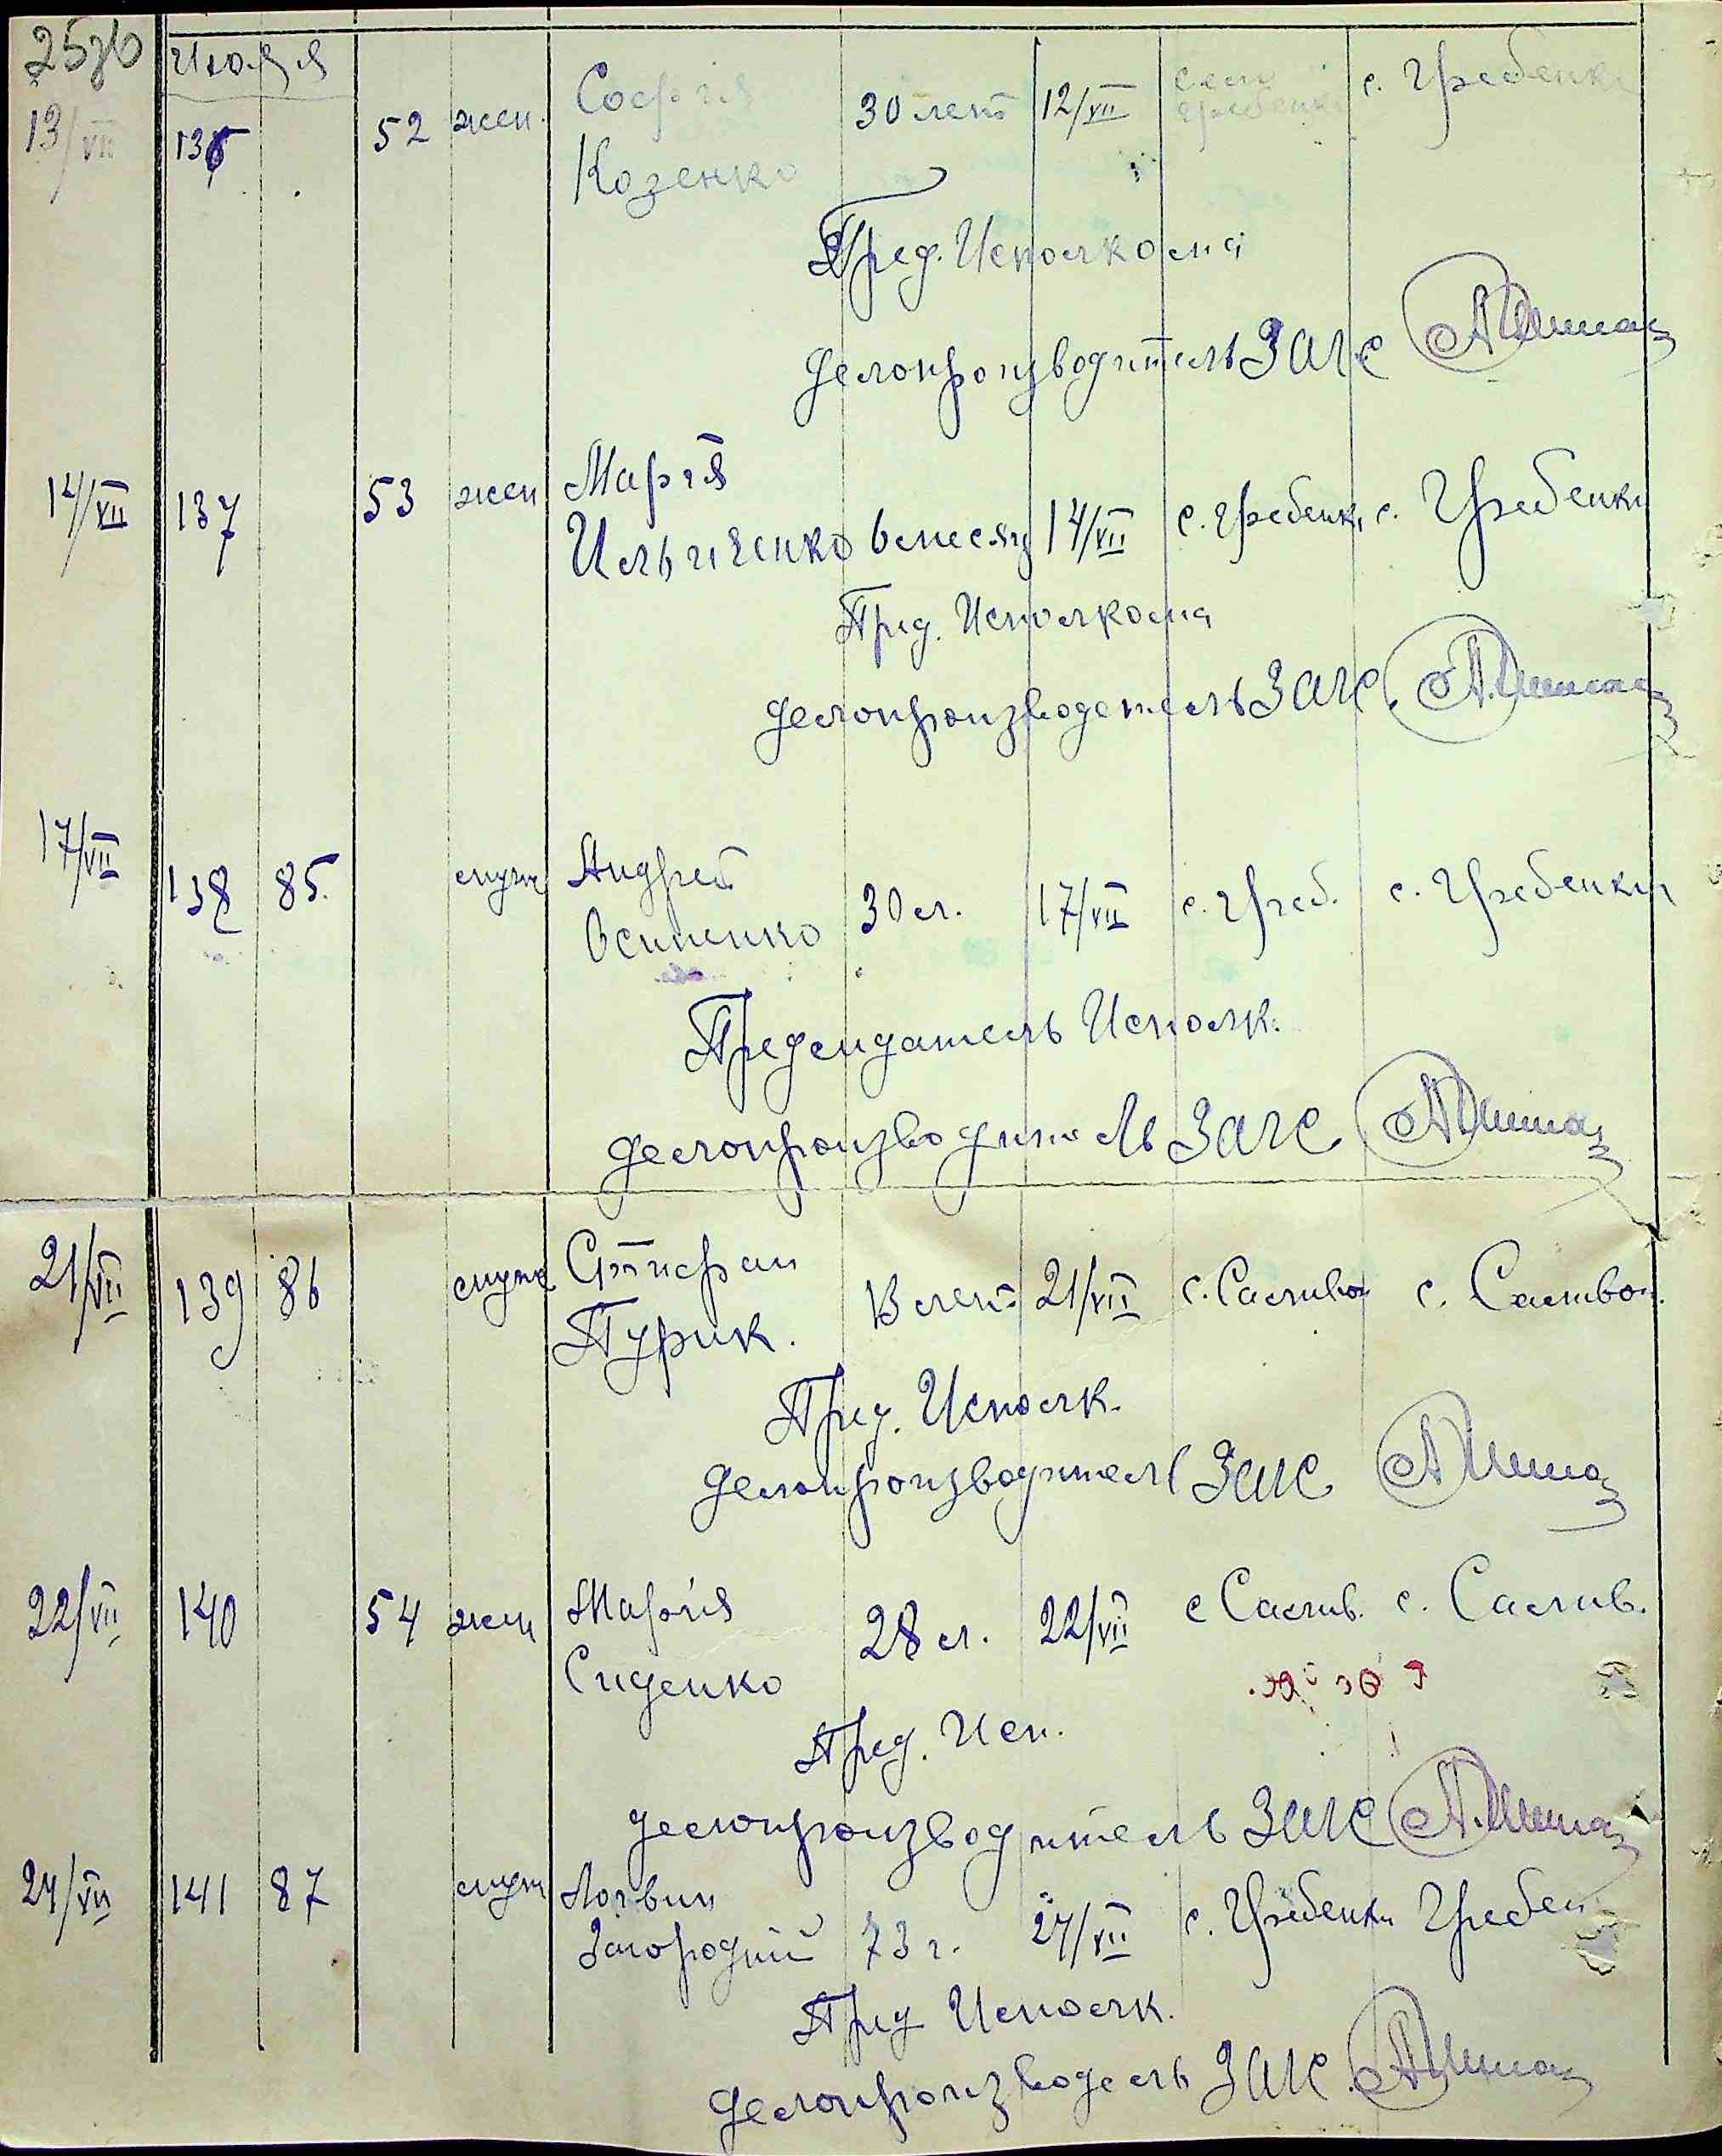 258об
Июля
13/VII 136 52 жен. София 30 лет 12/VII село Гребенки с. Гребенки
Козенко
Пред. Исполкома
Делопроизводитель ЗАГС
14/VII 137 53 жен Мария
Ильиченко 6 месяц 14/VII с. Гребенк, с. Гребенки
Пред. Исполкома
Делопроизводетель ЗАГС.
17/VII 138 85. муж Андрей
Осипенко 30 л. 17/VII с. Греб. с. Гребенки
Председатель Исполк.
Делопроизводитель ЗАГС
21/VII 139 86 муж Стифан
Турик. 13 лет 21/VII с. Саливон с. Саливон.
Пред. Исполк.
Делопроизводитель ЗАГС
22/VII 140 54 жен Мария 28 л. 22/VII с Салив. с. Салив.
Сиденко
Пред. Исп.
делопроизводитель ЗАГС
24/VII 141 87 муж Логвин
Загородний 73 г. 24/VII с. Гребенки Гребен
Пред Исполк.
Делопроизводель ЗАГС.